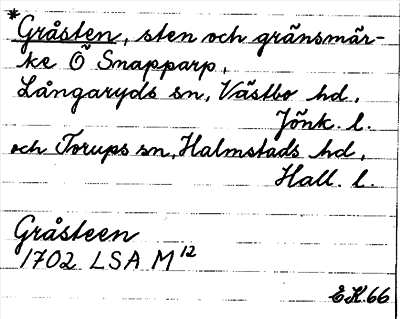 *Gråsten, sten och gränsmär-
ke Ö Snapparp,
Långaryds sn, Västbo hd,
Jönk. l.
och Torups sn, Halmstads hd,
Hall. l.
Gråsteen
1702 LSA M12
E.H. 66